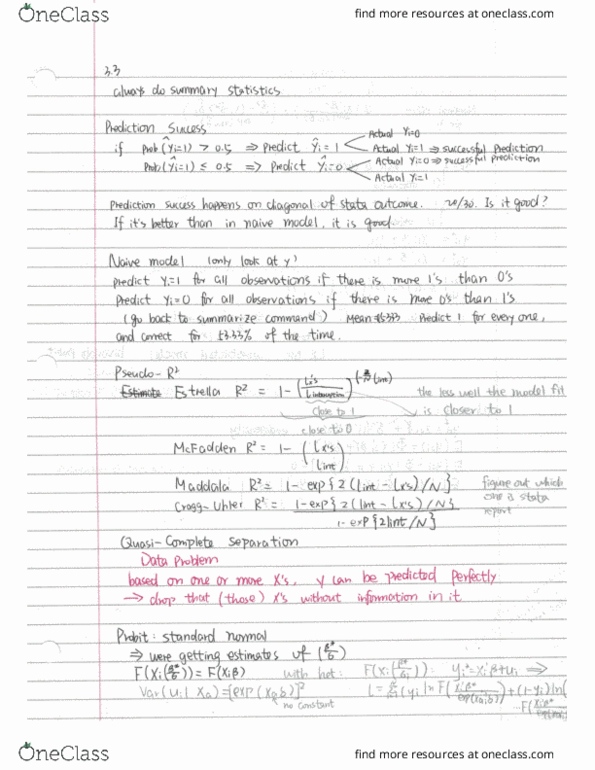 OneClass
find more resources at oneclass.com
3.3
always do summary statistics
Prediction Success
if Prob(Ŷi=1) > 0.5 ⇒ Predict Ŷi=1
Actual Yi=0
Actual Yi=1 ⇒ successful Prediction
Prob(Ŷi=1) ≤ 0.5 ⇒ Predict Ŷi=0
Actual Yi=0 ⇒ successful prediction
Actual Yi=1
Prediction success happens on diagonal of stata outcome. 20/30. Is it good?
If it's better than in naive model, it is good.
Naive model (only look at y)
Predict Yi=1 for all observations if there is more 1's than 0's
Predict Yi=0 for all observations if there is more 0's than 1's
(go back to summarize command) Mean Predict 1 for every one,
and correct for 53.33% of the time.
Pseudo-R²
Estrella R² = 1-(Lx's/Lintercept
the less well the model fit
close to 1
is closer to 1
close to 0
McFadden R² = 1-(Lx's/Lint)
Maddala R² = 1-exp{2(Lint-Lx's)/N}
figure out which
one is stata
report
Cragg-Uhler R² = 1-exp{2(Lint-Lx's)/N}
1-exp{2Lint/N}
Quasi-Complete separation
Data Problem
based on one or more X's, y can be predicted perfectly
→ drop that (those) X's without information in it
Probit: standard normal
⇒ were getting estimates of (β*/σ)
F(Xi(β*/σ)) = F(Xiβ) with het: F(Xi(β*/σ)): yi*=xi'β+ui ⇒
Var(ui|Xa)=[exp(Xab)]²
no constant
OneClass
find more resources at oneclass.com